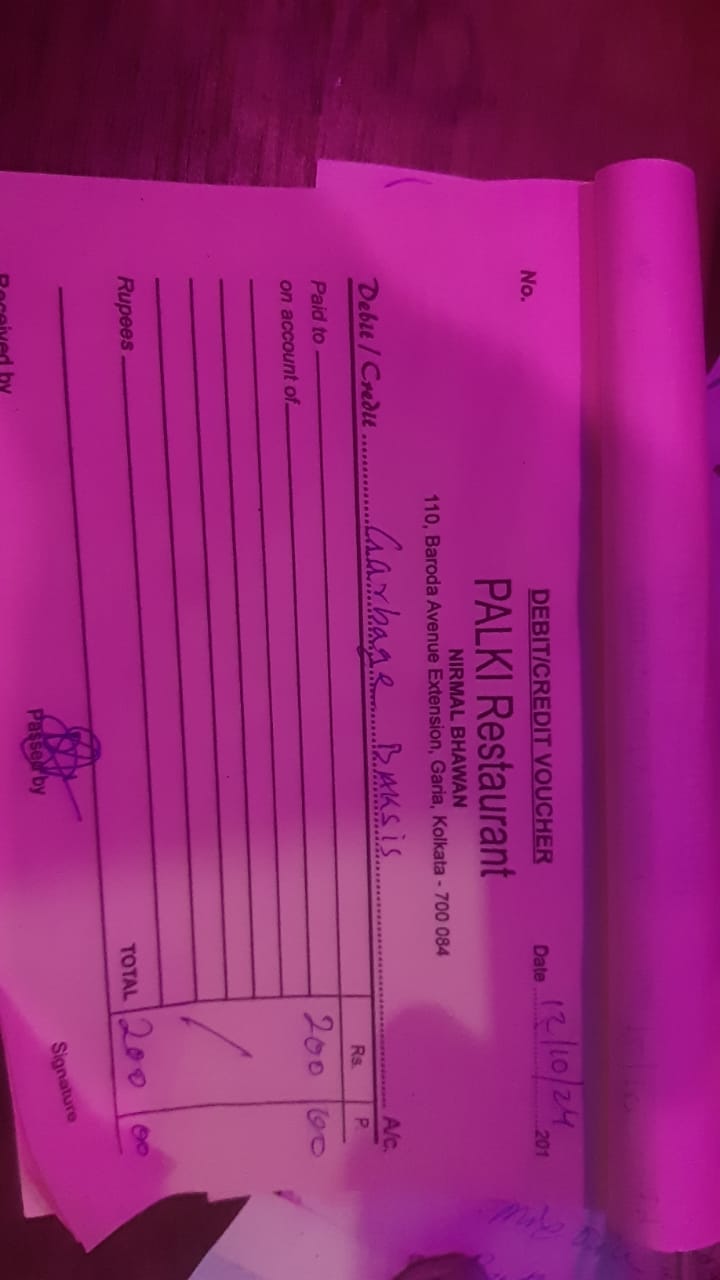 DEBIT/CREDIT VOUCHER
No.
Date 12/10/24 201
PALKI Restaurant
NIRMAL BHAWAN
110, Baroda Avenue Extension, Garia, Kolkata - 700 084
Debit / Credit Garbage BAKSIS A/c.
Rs. P.
Paid to 200 00
on account of
Rupees TOTAL 200 00
Received by Passed by Signature